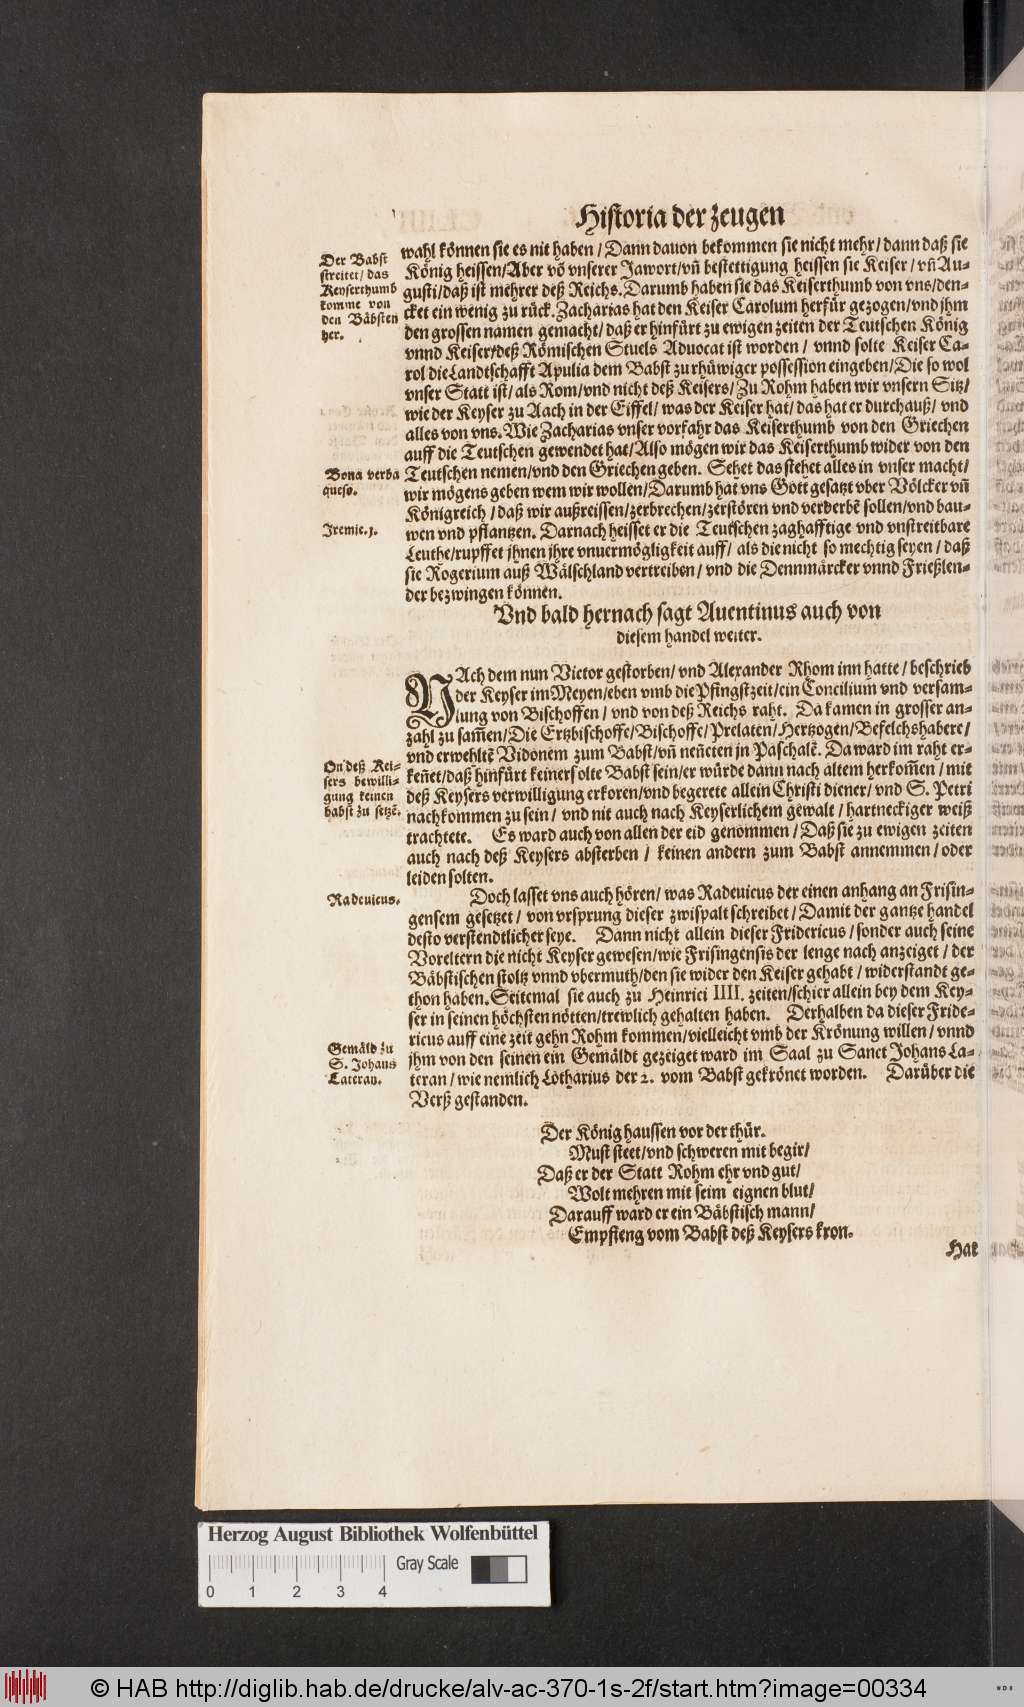 Historia der zeugen
Der Babst
streitet/ das
Keyserthumb
komme von
den Bäbsten
her.
wahl können sie es nit haben / Dann dauon bekommen sie nicht mehr/ dann daß sie
König heissen/Aber võ vnserer Jawort/vñ bestettigung heissen sie Keiser / vñ Au-
gusti/daß ist mehrer deß Reichs. Darumb haben sie das Keiserthumb von vns/den-
cket ein wenig zu rück. Zacharias hat den Keiser Carolum herfür gezogen/vnd jhm
den grossen namen gemacht/ daß er hinfürt zu ewigen zeiten der Teutschen König
vnnd Keiser/deß Römischen Stuels Aduocat ist worden / vnnd solte Keiser Ca-
rol die Landtschafft Apulia dem Babst zu rhüwiger possession eingeben/Die so wol
vnser Statt ist/ als Rom/vnd nicht deß Keisers/ Zu Rohm haben wir vnsern Sitz/
wie der Keyser zu Aach in der Eiffel/ was der Keiser hat/ das hat er durchauß/ vnd
alles von vns. Wie Zacharias vnser vorfahr das Keiserthumb von den Griechen
auff die Teutschen gewendet hat/Also mögen wir das Keiserthumb wider von den
Bona verba
queso.
Teutschen nemen/vnd den Griechen geben. Sehet das stehet alles in vnser macht/
wir mögens geben wem wir wollen/Darumb hat vns Gott gesatzt vber Völcker vñ
Königreich / daß wir außreissen/zerbrechen/zerstören vnd verderbẽ sollen/vnd bau-
Jremie.j.
wen vnd pflantzen. Darnach heisset er die Teutschen zaghafftige vnd vnstreitbare
Leuthe/rupffet jhnen jhre vnuermögligkeit auff/ als die nicht so mechtig seyen / daß
sie Rogerium auß Wälschland vertreiben/ vnd die Dennmärcker vnnd Frießlen-
der bezwingen können.
Vnd bald hernach sagt Auentinus auch von
diesem handel weiter.
NAch dem nun Victor gestorben/ vnd Alexander Rhom inn hatte / beschrieb
der Keyser im Meyen/eben vmb die Pfingstzeit/ein Concilium vnd versam-
lung von Bischoffen / vnd von deß Reichs raht. Da kamen in grosser an-
zahl zu sam̃en/Die Ertzbischoffe/Bischoffe/Prelaten/Hertzogen/Befelchshabere/
vnd erwehltẽ Vidonem zum Babst/vñ neñeten jn Paschalẽ. Da ward im raht er-
On deß Kei-
sers bewilli-
gung keinen
babst zu setzẽ.
keñet/daß hinfürt keiner solte Babst sein/er würde dann nach altem herkom̃en / mit
deß Keysers verwilligung erkoren/vnd begerete allein Christi diener/ vnd S. Petri
nachkommen zu sein / vnd nit auch nach Keyserlichem gewalt / hartneckiger weiß
trachtete. Es ward auch von allen der eid genommen / Daß sie zu ewigen zeiten
auch nach deß Keysers absterben / keinen andern zum Babst annemmen / oder
leiden solten.
Radeuicus.
Doch lasset vns auch hören/ was Radeuicus der einen anhang an Frisin-
gensem gesetzet / von vrsprung dieser zwispalt schreibet / Damit der gantze handel
desto verstendtlicher seye. Dann nicht allein dieser Fridericus / sonder auch seine
Voreltern die nicht Keyser gewesen/wie Frisingensis der lenge nach anzeiget / der
Bäbstischen stoltz vnnd vbermuth/den sie wider den Keiser gehabt / widerstandt ge-
thon haben. Seitemal sie auch zu Heinrici IIII. zeiten/schier allein bey dem Key-
ser in seinen höchsten nötten/trewlich gehalten haben. Derhalben da dieser Fride-
ricus auff eine zeit gehn Rohm kommen/vielleicht vmb der Krönung willen / vnnd
Gemäld zu
S. Johans
Lateran.
jhm von den seinen ein Gemäldt gezeiget ward im Saal zu Sanct Johans La-
teran / wie nemlich Lotharius der 2. vom Babst gekrönet worden. Darüber die
Verß gestanden.
Der König haussen vor der thür.
Must steet/vnd schweren mit begir/
Daß er der Statt Rohm ehr vnd gut/
Wolt mehren mit seim eignen blut/
Darauff ward er ein Bäbstisch mann/
Empfieng vom Babst deß Keysers kron.
Hat
Herzog August Bibliothek Wolfenbüttel
Gray Scale
0 1 2 3 4
© HAB http://diglib.hab.de/drucke/alv-ac-370-1s-2f/start.htm?image=00334